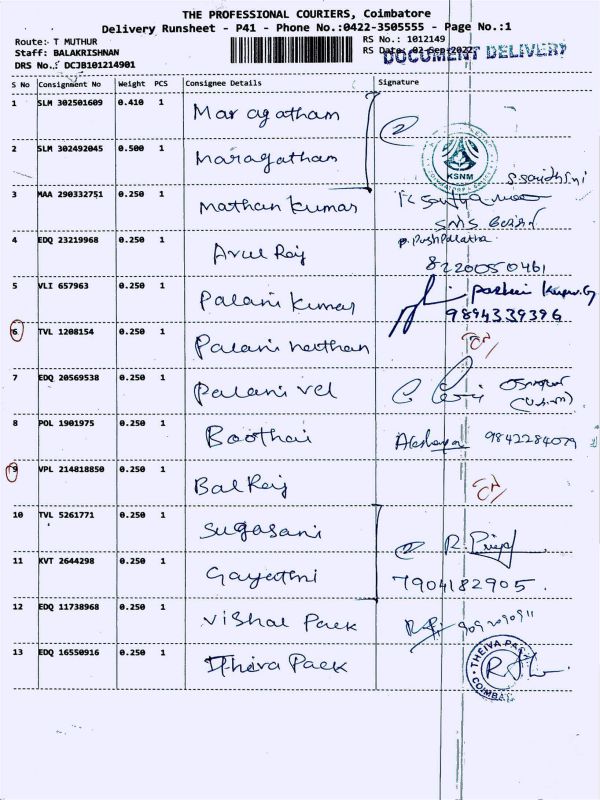 THE PROFESSIONAL COURIERS, Coimbatore
Delivery Runsheet - P41 - Phone No.:0422-3505555 - Page No.:1
Route: T MUTHUR
RS No.: 1012149
Staff: BALAKRISHNAN
RS Date: 02-Sep-2022
DOCUMENT DELIVERY
DRS No.: DCJB101214901
S No Consignment No Weight PCS Consignee Details Signature
1 SLM 302501609 0.410 1 Maragatham
2
2 SLM 302492045 0.500 1 Maragatham
KSNM
3 MAA 290332751 0.250 1 Mathan kumar
SMS
4 EDQ 23219968 0.250 1 Arul Raj
P. Pushpalatha
8220050461
5 VLI 657963 0.250 1 Palani kumar
9894339396
6 TVL 1208154 0.250 1 Palani nathan
7 EDQ 20569538 0.250 1 Palani vel
8 POL 1901975 0.250 1 Boothai
Akshaya 9842284079
9 VPL 214818850 0.250 1 Bal Raj
10 TVL 5261771 0.250 1 Sugasani
2 R. Priya
11 KVT 2644298 0.250 1 Gayathri
7904182905
12 EDQ 11738968 0.250 1 Vishal Pack
13 EDQ 16550916 0.250 1 Theiva Pack
THEIVA PACK
COIMBATORE